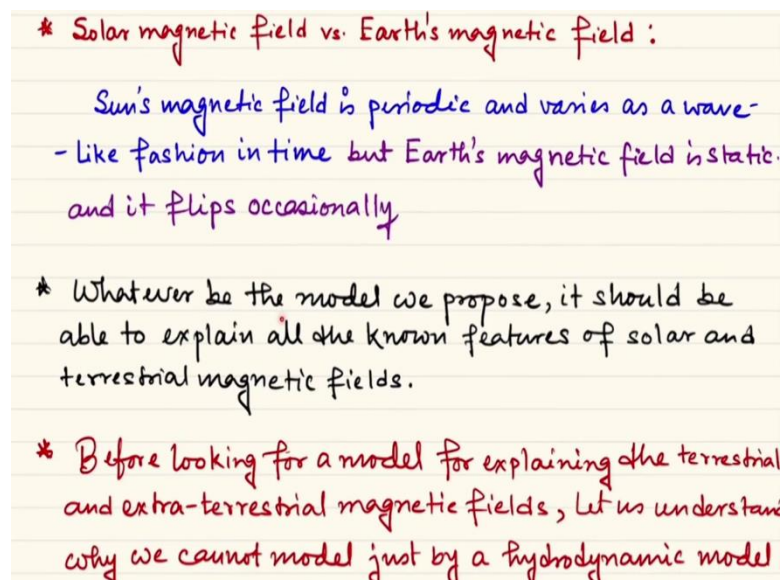 * Solar magnetic field vs. Earth's magnetic field :
Sun's magnetic field is periodic and varies as a wave-
- like fashion in time but Earth's magnetic field is static.
and it flips occasionally
* Whatever be the model we propose, it should be
able to explain all the known features of solar and
terrestrial magnetic fields.
* Before looking for a model for explaining the terrestrial
and extra-terrestrial magnetic fields, let us understand
why we cannot model just by a hydrodynamic model